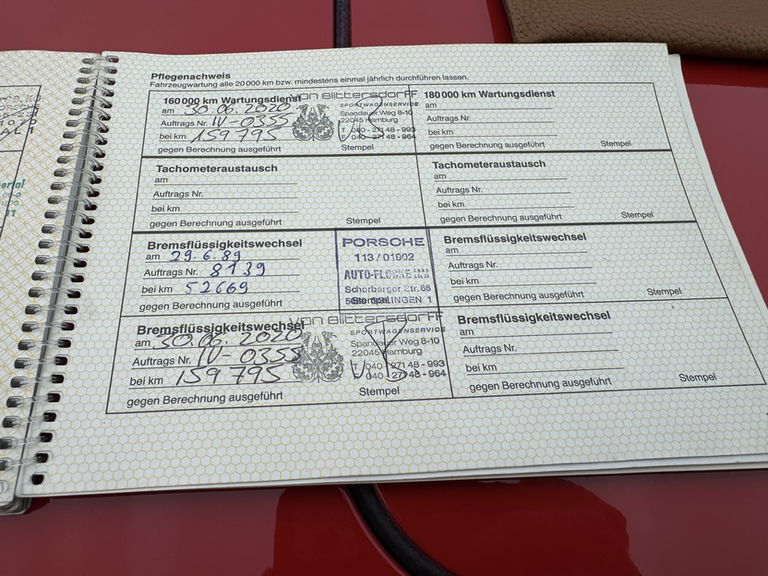 Pflegenachweis
Fahrzeugwartung alle 20 000 km bzw. mindestens einmal jährlich durchführen lassen.
160 000 km Wartungsdienst
am 30.06.2020
Auftrags Nr. IV-0355
bei km 159795
gegen Berechnung ausgeführt
Stempel
von Blittersdorff
SPORTWAGENSERVICE
Spandauer Weg 8-10
22045 Hamburg
T 040 - 271 48 - 993
F 040 - 271 48 - 964
180 000 km Wartungsdienst
am
Auftrags Nr.
bei km
gegen Berechnung ausgeführt
Stempel
Tachometeraustausch
am
Auftrags Nr.
bei km
gegen Berechnung ausgeführt
Stempel
Tachometeraustausch
am
Auftrags Nr.
bei km
gegen Berechnung ausgeführt
Stempel
Bremsflüssigkeitswechsel
am 29.6.89
Auftrags Nr. 8139
bei km 52669
gegen Berechnung ausgeführt
Stempel
PORSCHE
113 / 01902
Schorberger Str. 66
Bremsflüssigkeitswechsel
am
Auftrags Nr.
bei km
gegen Berechnung ausgeführt
Stempel
Bremsflüssigkeitswechsel
am 30.06.2020
Auftrags Nr. IV-0355
bei km 159795
gegen Berechnung ausgeführt
Stempel
von Blittersdorff
SPORTWAGENSERVICE
Spandauer Weg 8-10
22045 Hamburg
T 040 - 271 48 - 993
F 040 - 271 48 - 964
Bremsflüssigkeitswechsel
am
Auftrags Nr.
bei km
gegen Berechnung ausgeführt
Stempel